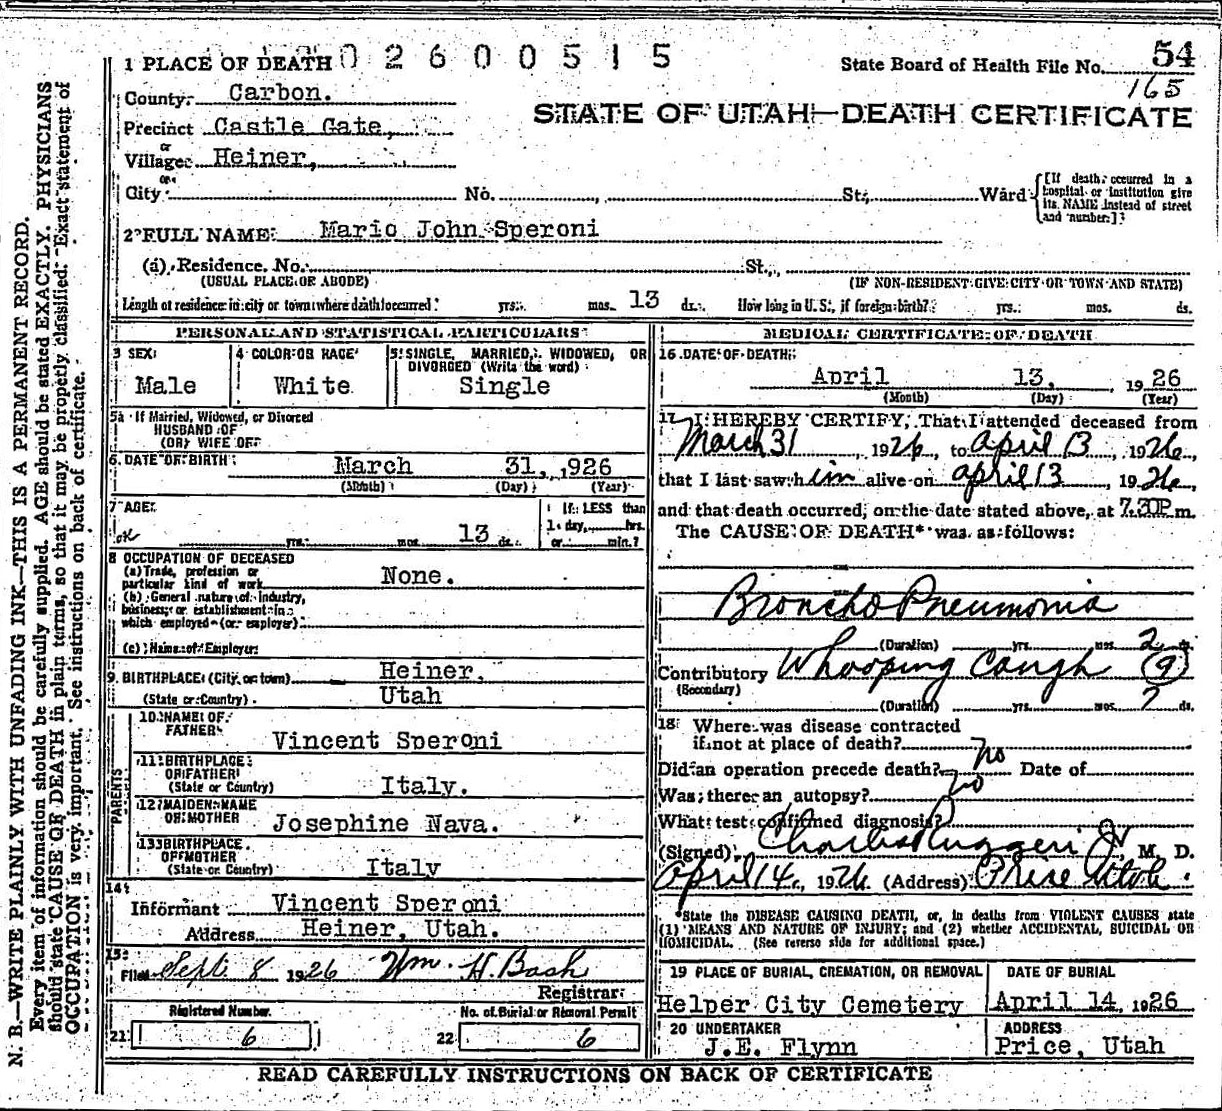 1 PLACE OF DEATH 02600515
State Board of Health File No. 54
165
County Carbon.
STATE OF UTAH—DEATH CERTIFICATE
Precinct Castle Gate,
or
Village Heiner,
or
City No. St., Ward
[If death occurred in a hospital or institution give its NAME instead of street and number.]
2 FULL NAME Mario John Speroni
(a) Residence. No. St.,
(USUAL PLACE OR ABODE) (IF NON-RESIDENT GIVE CITY OR TOWN AND STATE)
Length of residence in city or town where death occurred yrs. mos. 13 ds. How long in U. S., if foreign birth? yrs. mos. ds.
PERSONAL AND STATISTICAL PARTICULARS
3 SEX
Male
4 COLOR OR RACE
White
5 SINGLE, MARRIED, WIDOWED, OR
DIVORCED (Write the word)
Single
5a If Married, Widowed, or Divorced
HUSBAND OF
(OR) WIFE OF
6 DATE OF BIRTH March 31, 1926
(Month) (Day) (Year)
7 AGE
yrs. mos. 13 ds.
If LESS than
1 day, hrs.
or min.?
8 OCCUPATION OF DECEASED
(a) Trade, profession or
particular kind of work None.
(b) General nature of industry,
business, or establishment in
which employed (or employer)
(c) Name of Employer
9 BIRTHPLACE (City or town) Heiner,
(State or Country) Utah
PARENTS
10 NAME OF
FATHER Vincent Speroni
11 BIRTHPLACE
OF FATHER
(State or Country) Italy.
12 MAIDEN NAME
OF MOTHER Josephine Nava.
13 BIRTHPLACE
OF MOTHER
(State or Country) Italy
14
Informant Vincent Speroni
Address Heiner, Utah.
15
Filed Sept 8 1926 Wm. H. Bash
Registrar
Registered Number No. of Burial or Removal Permit
21 6 22 6
MEDICAL CERTIFICATE OF DEATH
16 DATE OF DEATH
April 13, 1926
(Month) (Day) (Year)
17 I HEREBY CERTIFY, That I attended deceased from
March 31, 1926, to April 13, 1926,
that I last saw h im alive on april 13, 1926,
and that death occurred, on the date stated above, at 7.30P m.
The CAUSE OF DEATH* was as follows:
Broncho Pneumonia
(Duration) yrs. mos. 2 ds.
Contributory Whooping Cough (9)
(Secondary)
(Duration) yrs. mos. 7 ds.
18 Where was disease contracted
if not at place of death?
Did an operation precede death? no Date of
Was there an autopsy? no
What test confirmed diagnosis?
(Signed) Charles Ruggeri Jr M. D.
April 14, 1926 (Address) Price Utah.
*State the DISEASE CAUSING DEATH, or, in deaths from VIOLENT CAUSES state
(1) MEANS AND NATURE OF INJURY; and (2) whether ACCIDENTAL, SUICIDAL OR
HOMICIDAL. (See reverse side for additional space.)
19 PLACE OF BURIAL, CREMATION, OR REMOVAL
Helper City Cemetery
DATE OF BURIAL
April 14, 1926
20 UNDERTAKER
J.E. Flynn
ADDRESS
Price, Utah
READ CAREFULLY INSTRUCTIONS ON BACK OF CERTIFICATE
N. B.—WRITE PLAINLY WITH UNFADING INK—THIS IS A PERMANENT RECORD.
Every item of information should be carefully supplied. AGE should be stated EXACTLY. PHYSICIANS
should state CAUSE OF DEATH in plain terms, so that it may be properly classified. Exact statement of
OCCUPATION is very important. See instructions on back of certificate.